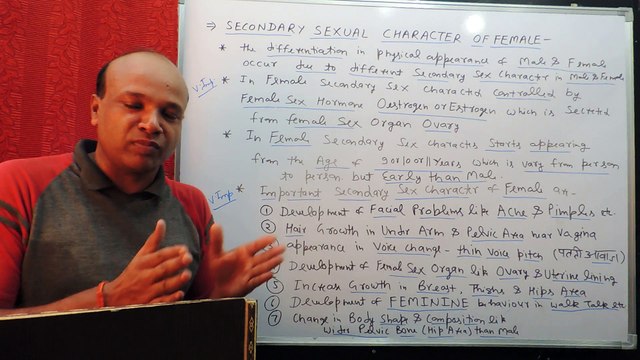 ⇒ SECONDARY SEXUAL CHARACTER OF FEMALE -
* the differentiation in physical appearance of Male & Female
occur due to different Secondary Sex Character in Male & Female
V. Imp * In Female Secondary Sex Character Controlled by
Female Sex Hormone Oestrogen or Estrogen which is Secreted
from female Sex Organ Ovary
* In Female Secondary Sex Character Starts appearing
from the Age of 9 or 10 or 11 Years which is vary from person
to person but Early than Male.
V Imp * Important Secondary Sex Character of Female are-
① Development of Facial Problems like Acne & Pimples etc.
② Hair Growth in Under Arm & Pelvic Area near Vagina
appearance in Voice change - thin Voice pitch (पतली आवाज)
Development of Female Sex Organ like Ovary & Uterine lining
⑤ Increase Growth in Breast, Thighs & Hips Area
⑥ Development of FEMININE behaviour in walk Talk etc
⑦ Change in Body Shape & Composition like
Wider Pelvic Bone (Hip Area) than Male